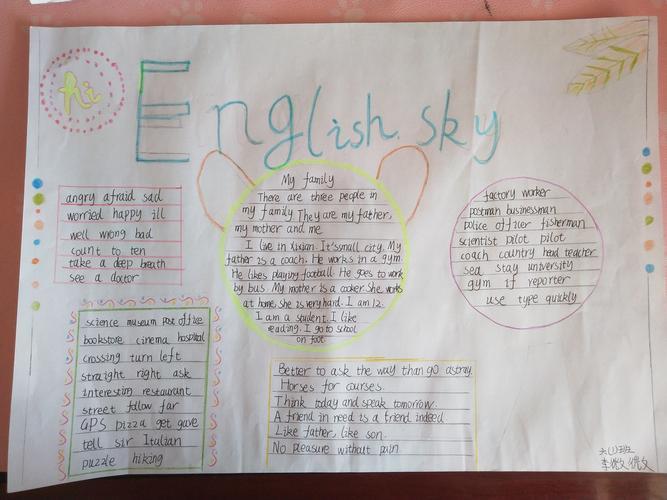 hi
English sky
angry afraid sad
worried happy ill
well wrong bad
count to ten
take a deep breath
see a doctor
My family
There are three people in
my family They are my father,
my mother and me.
I live in Xixian. It'ssmall city. My
father is a coach. He works in a gym
He likes playing football. He goes to work
by bus. My mother is a cooker. She works
at home. She is very hard. I am 12.
I am a student. I like
eading. I go to school
on foot.
factory worker
postman businessman
police officer fisherman
scientist pilot pilot
coach country head teacher
sea stay university
gym if reporter
use type quickly
science museum post office
bookstore cinema hospital
crossing turn left
straight right ask
interesting restaurant
street follow far
GPS pizza get gave
tell sir Italian
puzzle hiking
Better to ask the way than go astray.
Horses for courses.
Think today and speak tomorrow.
A friend in need is a friend indeed
Like father, like son.
No pleasure without pain
六(1)班